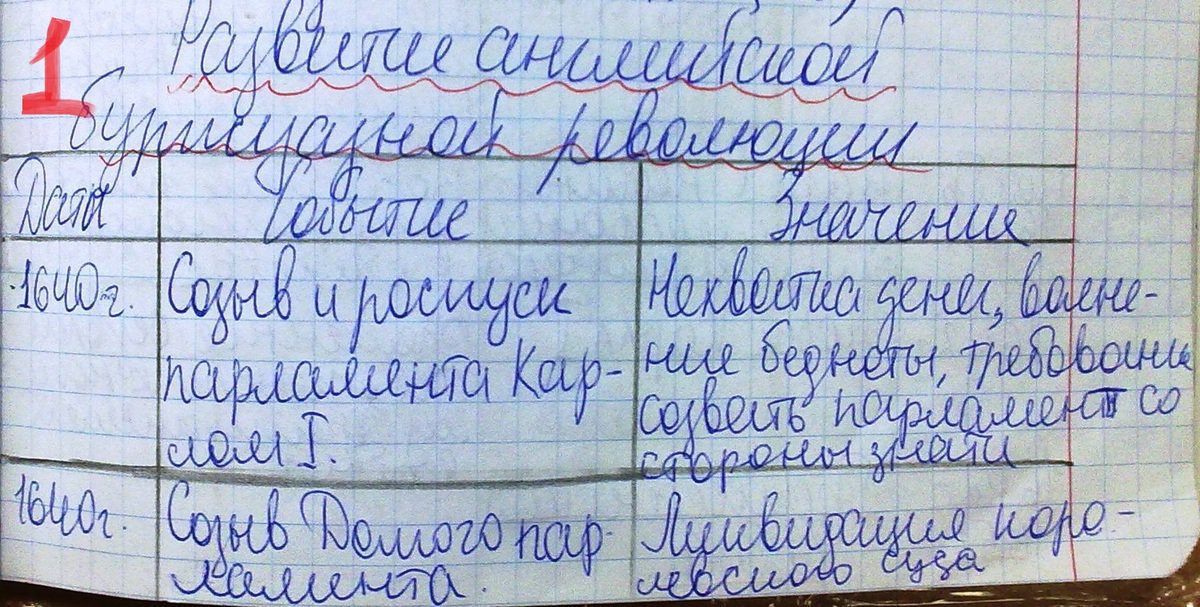 1
Развитие английской
буржуазной революции
Даты Событие Значение
1640 г. Созыв и роспуск
парламента Кар-
лом I.
Нехватка денег, волне-
ние бедноты, требование
созвать парламент со
стороны знати
1640 г. Созыв Долгого пар-
ламента.
Ликвидация коро-
левского суда